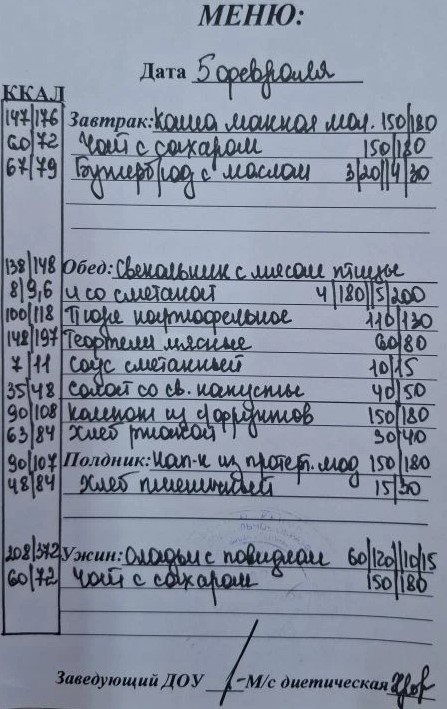 МЕНЮ:
Дата 5 февраля
ККАЛ
147/176 Завтрак: Каша манная мол. 150/180
60/72 Чай с сахаром 150/180
67/79 Бутерброд с маслом 3/20//4/30
138/148 Обед: Свекольник с мясом птицы
8/9,6 и со сметаной 4/180//5/200
100/118 Пюре картофельное 110/130
148/197 Тефтели мясные 60/80
7/11 Соус сметанный 10/15
35/48 Салат со св. капусты 40/50
90/108 Компот из фруктов 150/180
63/84 Хлеб ржаной 30/40
90/107 Полдник: Нап-к из протерт. мод 150/180
48/84 Хлеб пшеничный 15/30
208/372 Ужин: Оладьи с повидлом 60/120//10/15
60/72 Чай с сахаром 150/180
Заведующий ДОУ М/с диетическая